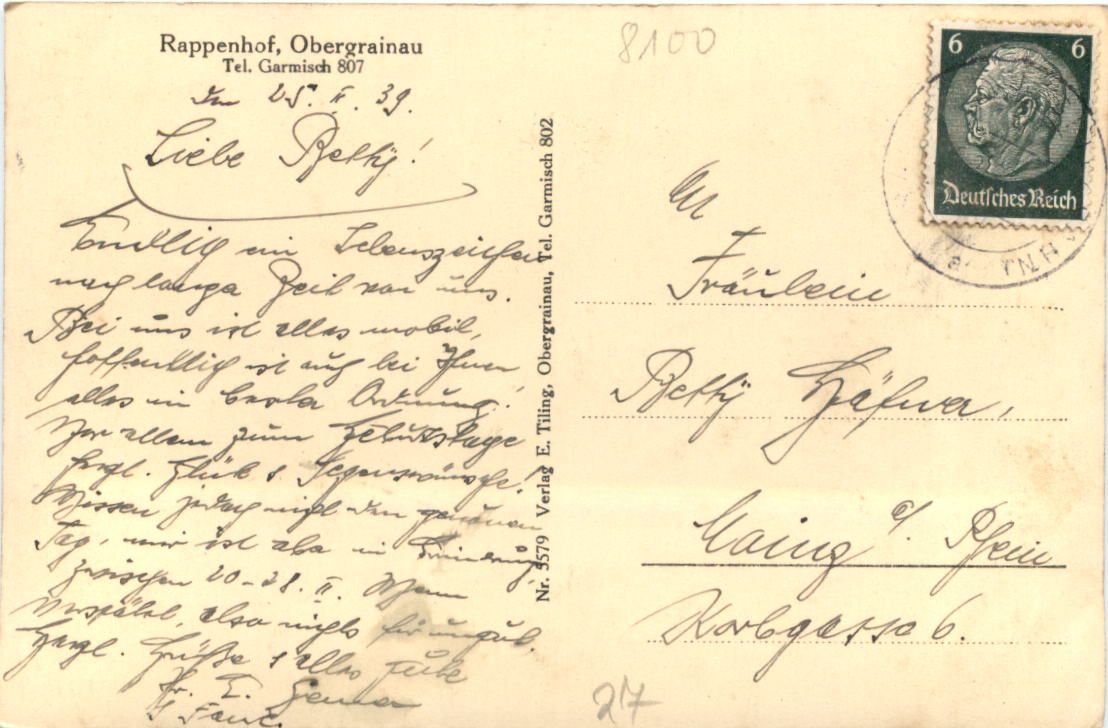 Rappenhof, Obergrainau
Tel. Garmisch 807
den 25. II. 39.
Liebe Betty!
Endlich ein Lebenszeichen
nach langer Zeit von uns.
Bei uns ist alles mobil,
hoffentlich ist auch bei Ihnen
alles in bester Ordnung!
Vor allem zum Geburtstage
herzl. Glück & Segenswünsche!
Wissen jedoch nicht den genauen
Tag, mir ist aber in Erinnerung,
zwischen 20-28. II. Wenn
verspätet, also nichts für ungut.
Herzl. Grüße & alles Gute
Nr. 5579 Verlag E. Tiling, Obergrainau, Tel. Garmisch 802
8100
6 6
Deutsches Reich
An
Fräulein
Betty Häfner,
Mainz a/ Rhein
Korbgasse 6.
27